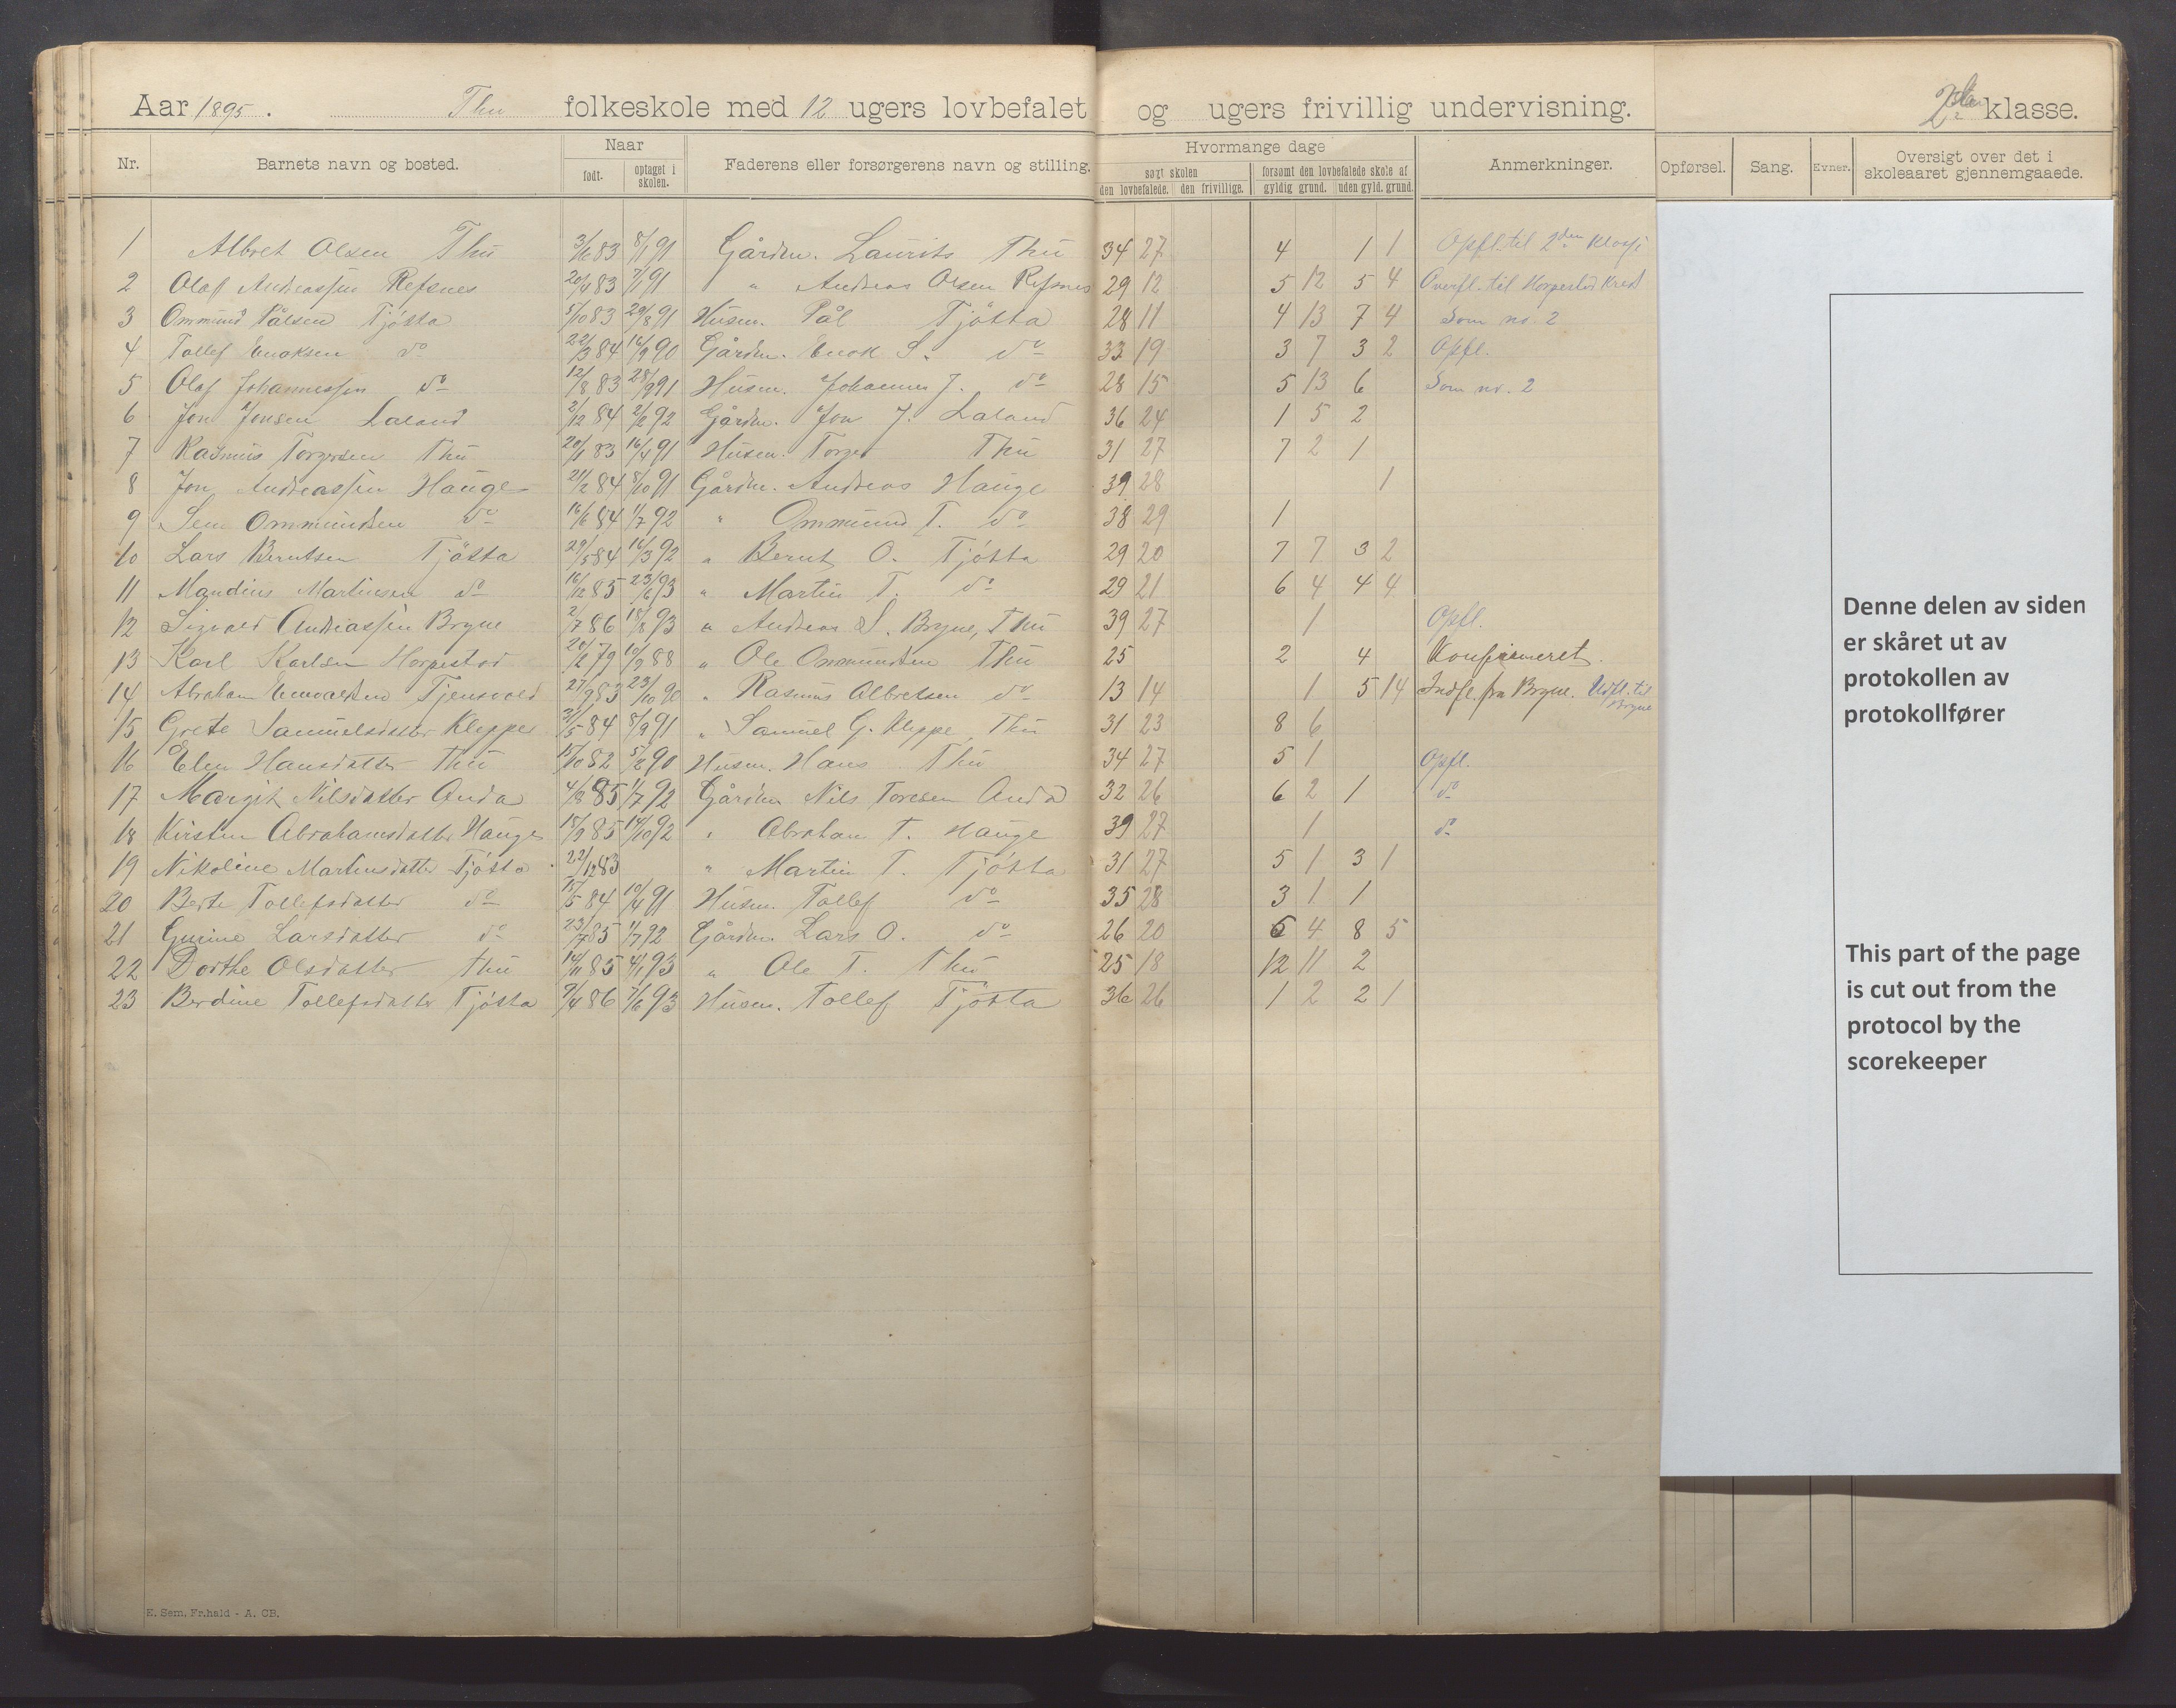 Aar 1895. Thu folkeskole med 12 ugers lovbefalet og ugers frivillig undervisning. klasse.
Nr. Barnets navn og bosted. Naar født. optaget i skolen. Faderens eller forsørgerens navn og stilling. Hvormange dage søgt skolen den lovbefalede. den frivillige. forsømt den lovbefalede skole af gyldig grund. uden gyld. grund. Anmerkninger. Opførsel. Sang. Evner. Oversigt over det i skoleaaret gjennemgaaede.
1 Albret Olsen Thu 3/6 83 8/1 91 Gårdm. Laurits Thu 34 27 4 1 1 Opfl. til 2den klasse
2 Olaf Andreassen Refsnes 20/4 83 7/1 91 " Andreas Olsen Refsnes 29 12 5 12 5 4 Overfl. til Horpestad Kreds
3 Ommund Pålsen Tjøtta 5/10 83 29/8 91 Husm. Pål Tjøtta 28 11 4 13 7 4 Som no. 2
4 Tollef Enoksen do 22/3 84 16/9 90 Gårdm. Enok S. do 33 19 3 7 3 2 Opfl.
5 Olaf Johannessen do 12/8 83 28/9 91 Husm. Johannes J. do 28 15 5 13 6 Som no. 2
6 Jon Jonsen Laland 2/12 84 2/2 92 Gårdm. Jon J. Laland 36 24 1 5 2
7 Rasmus Torgersen Thu 20/1 83 16/4 91 Husm. Torger Thu 31 27 7 2 1
8 Jon Andreassen Hauge 21/2 84 8/10 91 Gårdm. Andreas Hauge 39 28 1
9 Sem Ommundsen do 16/6 84 1/7 92 " Ommund T. do 38 29 1
10 Lars Berntsen Tjøtta 29/5 84 16/3 92 " Bernt O. Tjøtta 29 20 7 7 3 2
11 Mandius Martinsen do 16/12 85 23/6 93 " Martin T. do 29 21 6 4 4 4
12 Sigvald Andreassen Bryne 2/7 86 18/8 93 " Andreas S. Bryne, Thu 39 27 1 Opfl.
13 Karl Karlsen Horpestad 20/2 79 10/9 88 " Ole Ommundsen Thu 25 2 4 Konfirmeret.
14 Abraham Tjensvold 27/9 83 23/10 90 " Rasmus Albretsen do 13 14 1 5 14 Indfl. fra Bryne. Udfl. til Bryne
15 Grete Samuelsdatter Kleppe 31/5 84 8/9 91 " Samuel G. Kleppe, Thu 31 23 8 6
16 Elen Hansdatter Thu 15/10 82 5/2 90 Husm. Hans Thu 34 27 5 1 Opfl.
17 Margit Nilsdatter Anda 4/8 85 1/7 92 Gårdm. Nils Toresen Anda 32 26 6 2 1 do
18 Kirstin Abrahamsdatter Hauge 18/9 85 14/10 92 " Abraham T. Hauge 39 27 1 do
19 Nikoline Martinsdatter Tjøtta 22/12 83 " Martin T. Tjøtta 31 27 5 1 3 1
20 Berte Tollefsdatter do 15/5 84 10/4 91 Husm. Tollef do 35 28 3 1 1
21 Gurine Larsdatter do 23/7 85 1/7 92 Gårdm. Lars O. do 26 20 6 4 8 5
22 Dorthe Olsdatter Thu 14/11 85 4/1 93 " Ole T. Thu 25 18 12 11 2
23 Berdine Tollefsdatter Tjøtta 9/4 86 7/6 93 Husm. Tollef Tjøtta 36 26 1 2 2 1
Denne delen av siden
er skåret ut av
protokollen av
protokollfører
This part of the page
is cut out from the
protocol by the
scorekeeper
E. Sem, Fr.hald - A. CB.